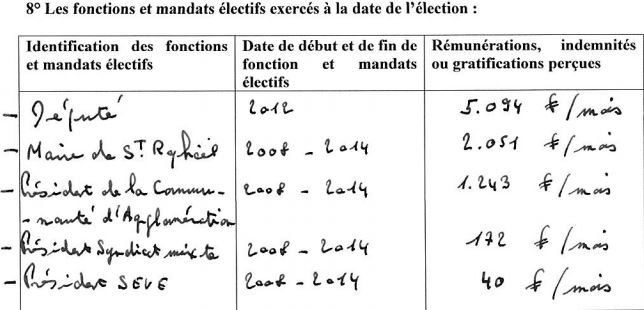 8° Les fonctions et mandats électifs exercés à la date de l'élection :
Identification des fonctions et mandats électifs
Date de début et de fin de fonction et mandats électifs
Rémunérations, indemnités ou gratifications perçues
- Député 2012 5.094 €/mois
- Maire de ST Raphaël 2008 - 2014 2.051 €/mois
- Président de la Commu- 2008 - 2014 1.243 €/mois
- nauté d'Agglomération
- Président Syndicat mixte 2008 - 2014 172 €/mois
- Président SEVE 2008 - 2014 40 €/mois